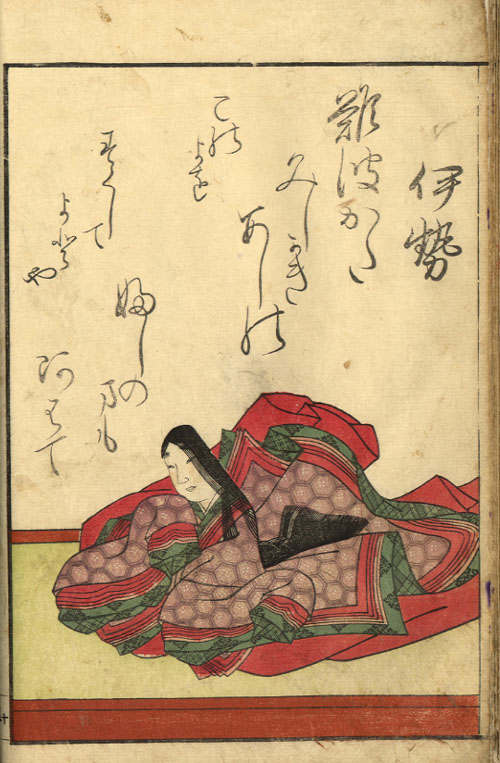 伊勢
難波かた
みしかき
あしの
婦しの
まも
阿はて
この
よを
すくして
よと
や